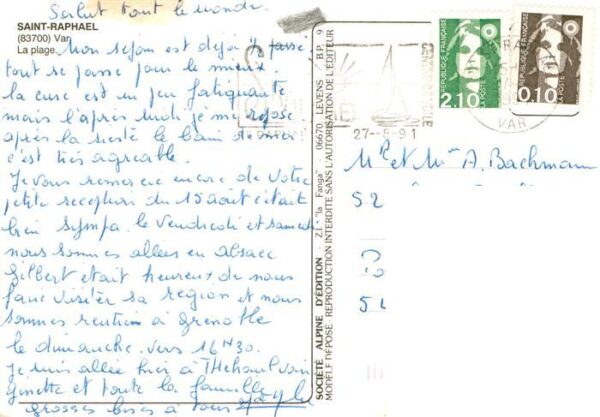 Salut tout le monde.
SAINT-RAPHAEL
(83700) Var
La plage.
Mon sejour est dejà passé
tout se passe pour le mieux.
la cure est un peu fatiguante
mais l'après midi je me repose
après la sieste le bain de mer
c'est très agreable.
Je vous remercie encore de votre
petite reception du 15 août c'etait
bien sympa. le vendredi et samedi
nous sommes allées en Alsace
Gilbert etait heureux de nous
faire visiter sa region et nous
sommes rentrées à Grenoble
le dimanche. vers 16H30.
Je suis allée hier à Théoule voir
Ginette et toute la famille
grosses bises à tous
SOCIÉTÉ ALPINE D'ÉDITION - Z.I. "la Fanga" 06670 LEVENS B.P. 9
MODELE DÉPOSÉ. REPRODUCTION INTERDITE SANS L'AUTORISATION DE L'ÉDITEUR
27-8-91
VAR
RÉPUBLIQUE FRANÇAISE
LA POSTE
2,10
RÉPUBLIQUE FRANÇAISE
LA POSTE
0,10
Mr et Mme A. Bachmann
52
51